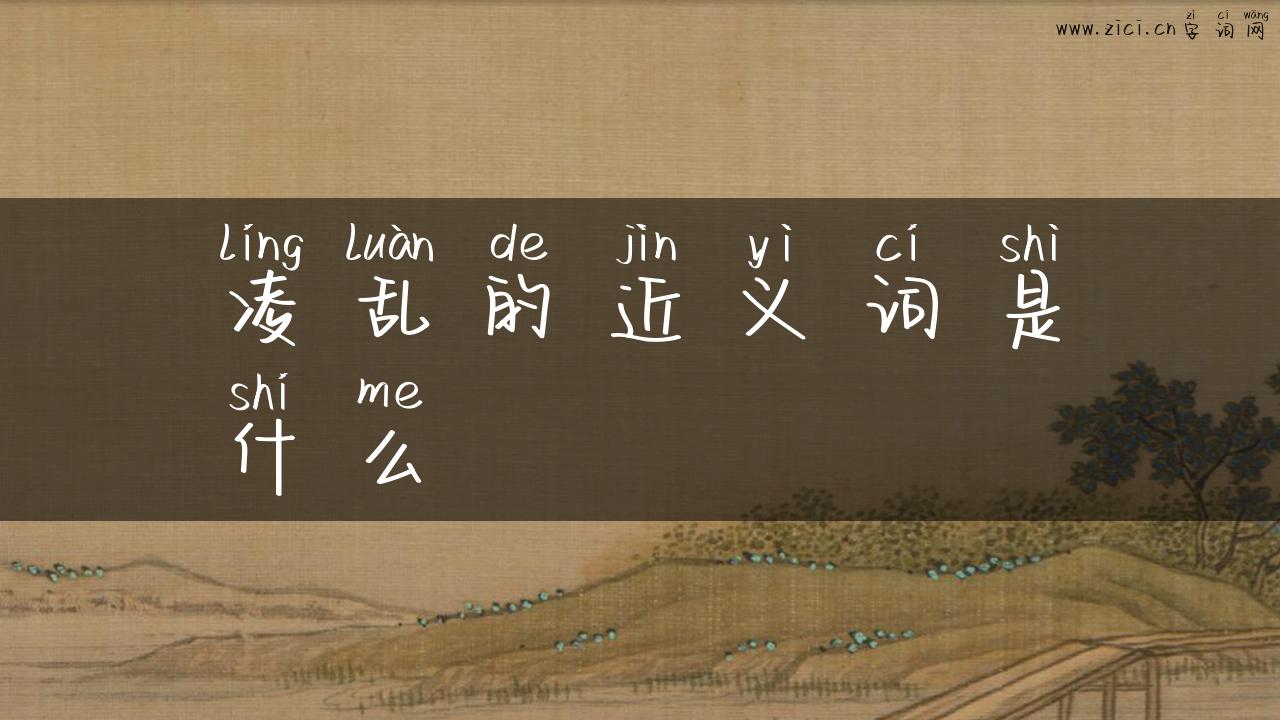 zì cí wǎng
www.zici.cn字词网
líng luàn de jìn yì cí shì
凌乱的近义词是
shí me
什么